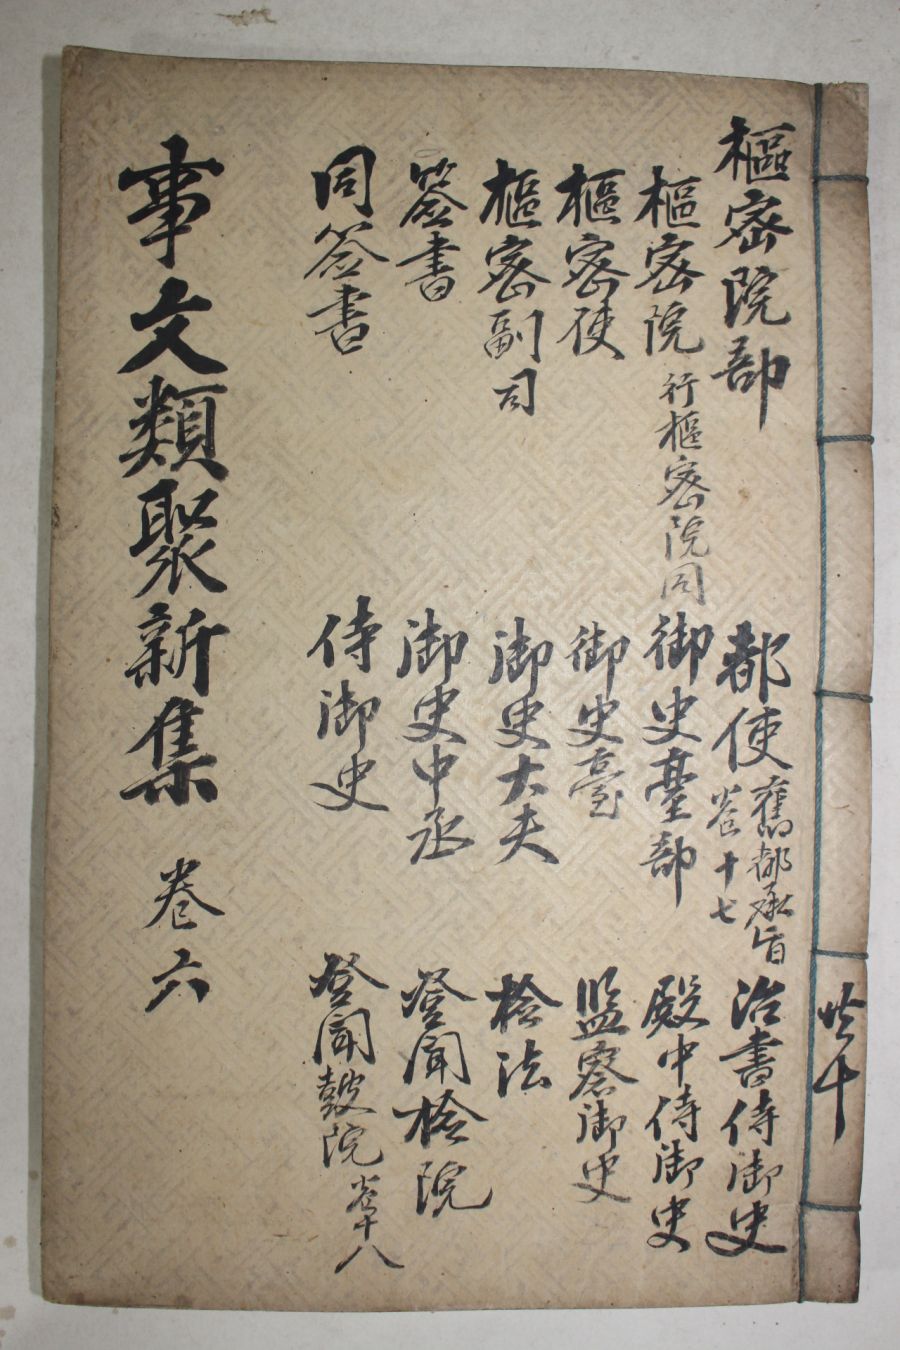 樞密院部
樞密院 行樞密院同
樞密使
樞密副司
簽書
同簽書
都使 舊都承旨
卷十七
御史臺部
御史臺
御史大夫
御史中丞
侍御史
治書侍御史
殿中侍御史
監察御史
檢法
登聞檢院
登聞皷院 卷十八
事文類聚新集 卷六
共十